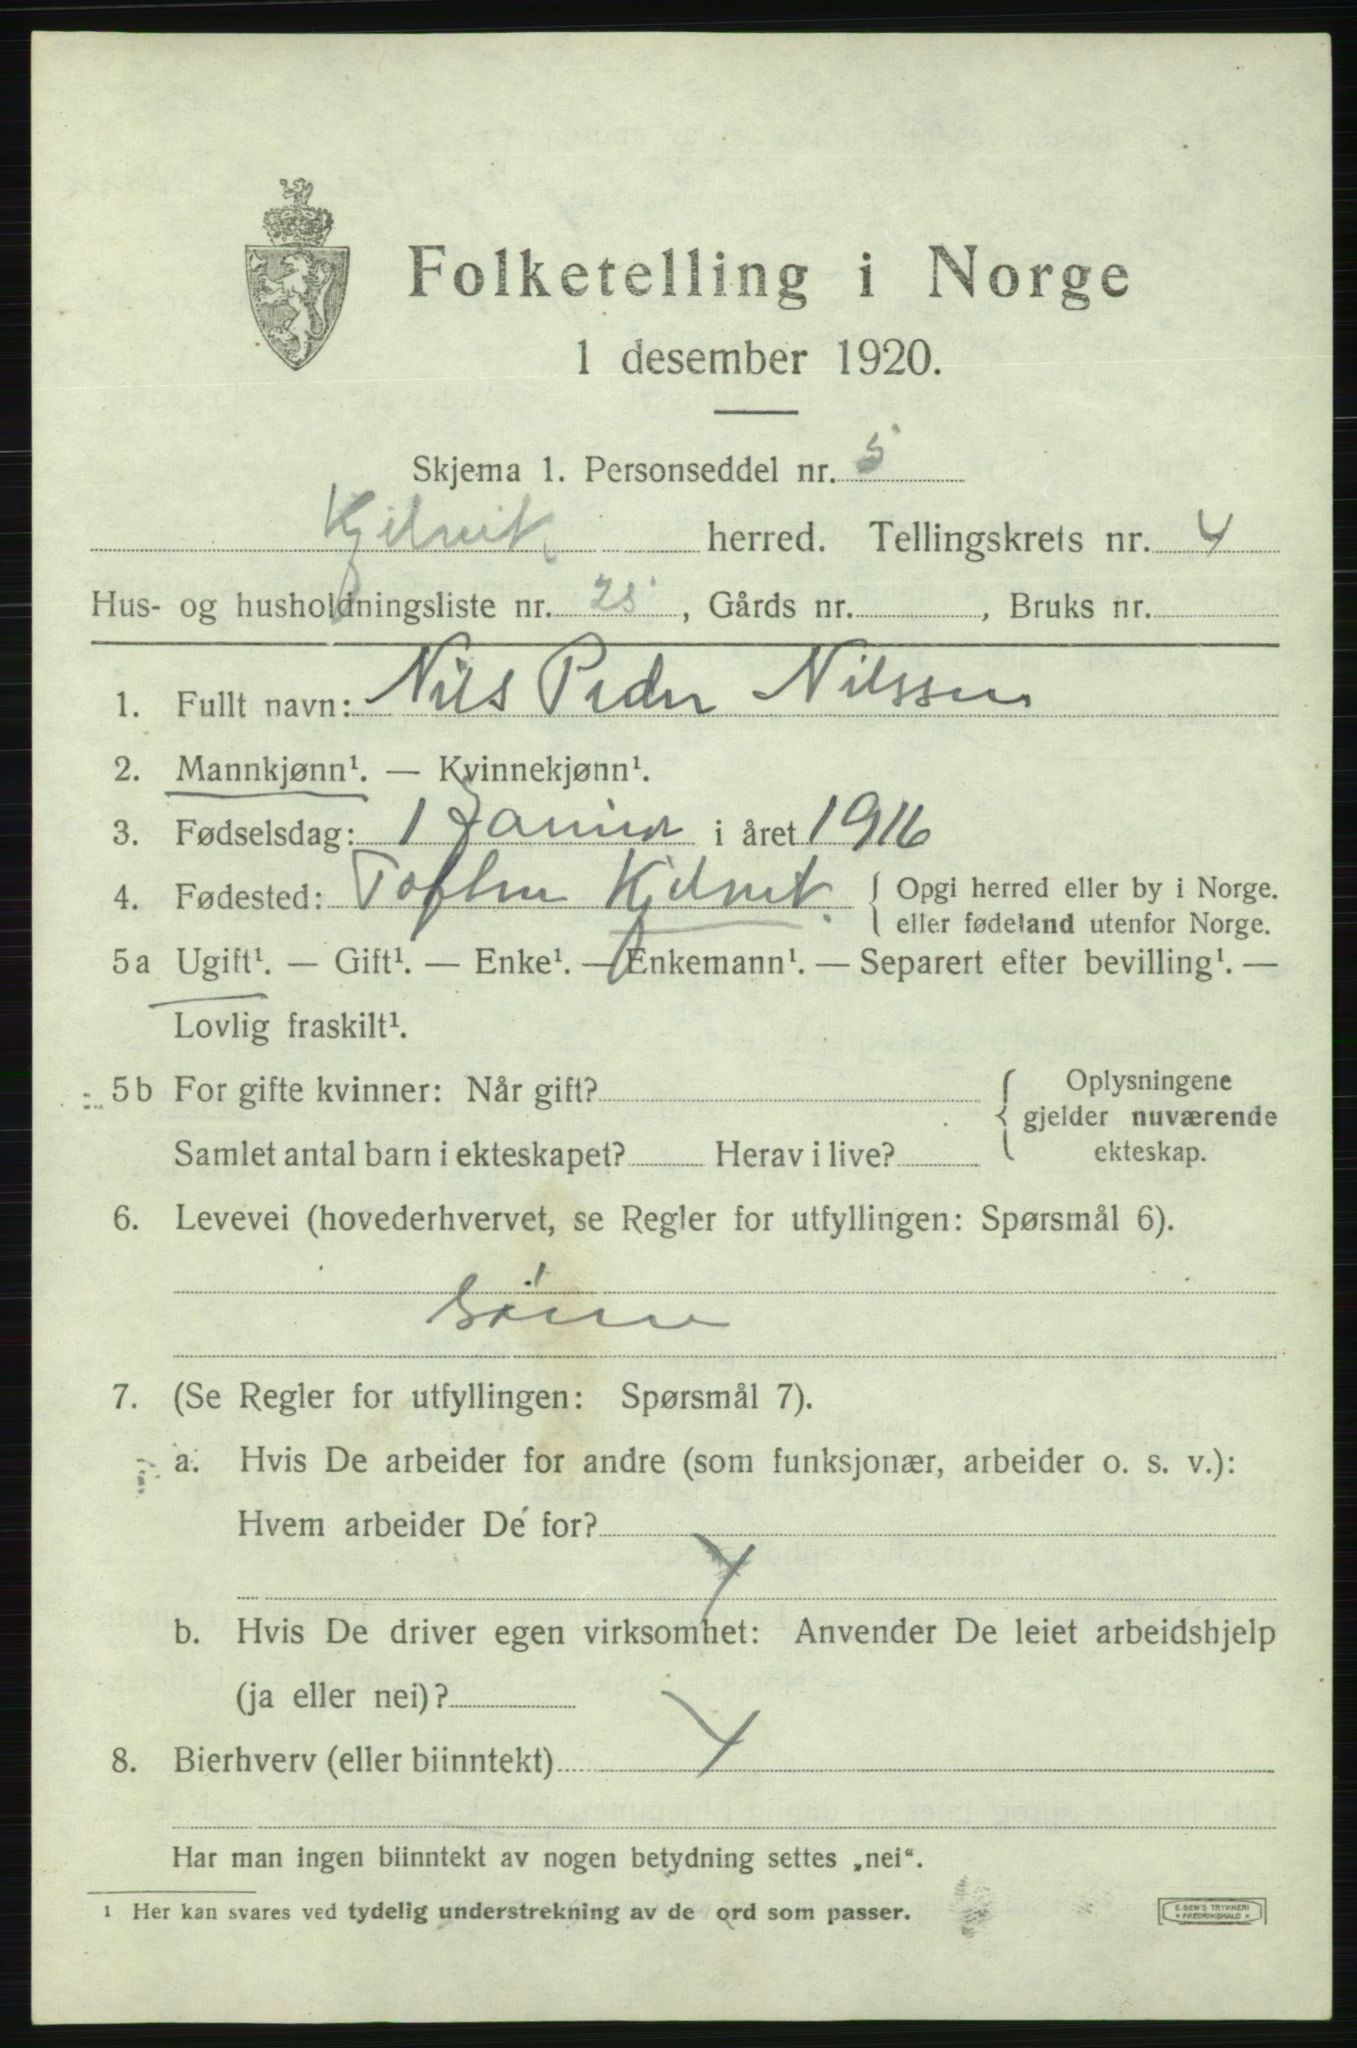 Folketelling i Norge
1 desember 1920.
Skjema 1. Personseddel nr. 5
Kjelvik herred. Tellingskrets nr. 4
Hus- og husholdningsliste nr. 25, Gårds nr. , Bruks nr.
1. Fullt navn: Nils Peder Nilssen
2. Mannkjønn¹. — Kvinnekjønn¹.
3. Fødselsdag: 1 Januar i året 1916
4. Fødested: Kjelvik. { Opgi herred eller by i Norge.
eller fødeland utenfor Norge.
5a Ugift¹. — Gift¹. — Enke¹. — Enkemann¹. — Separert efter bevilling¹. —
Lovlig fraskilt¹.
5b For gifte kvinner: Når gift? { Oplysningene
gjelder nuværende
Samlet antal barn i ekteskapet? Herav i live? ekteskap.
6. Levevei (hovederhvervet, se Regler for utfyllingen: Spørsmål 6).
7. (Se Regler for utfyllingen: Spørsmål 7).
a. Hvis De arbeider for andre (som funksjonær, arbeider o. s. v.):
Hvem arbeider De for?
b. Hvis De driver egen virksomhet: Anvender De leiet arbeidshjelp
(ja eller nei)?
8. Bierhverv (eller biinntekt)
Har man ingen biinntekt av nogen betydning settes „nei“.
1 Her kan svares ved tydelig understrekning av de ord som passer.
E. SEM'S TRYKKERI
* FREDRIKSHALD *